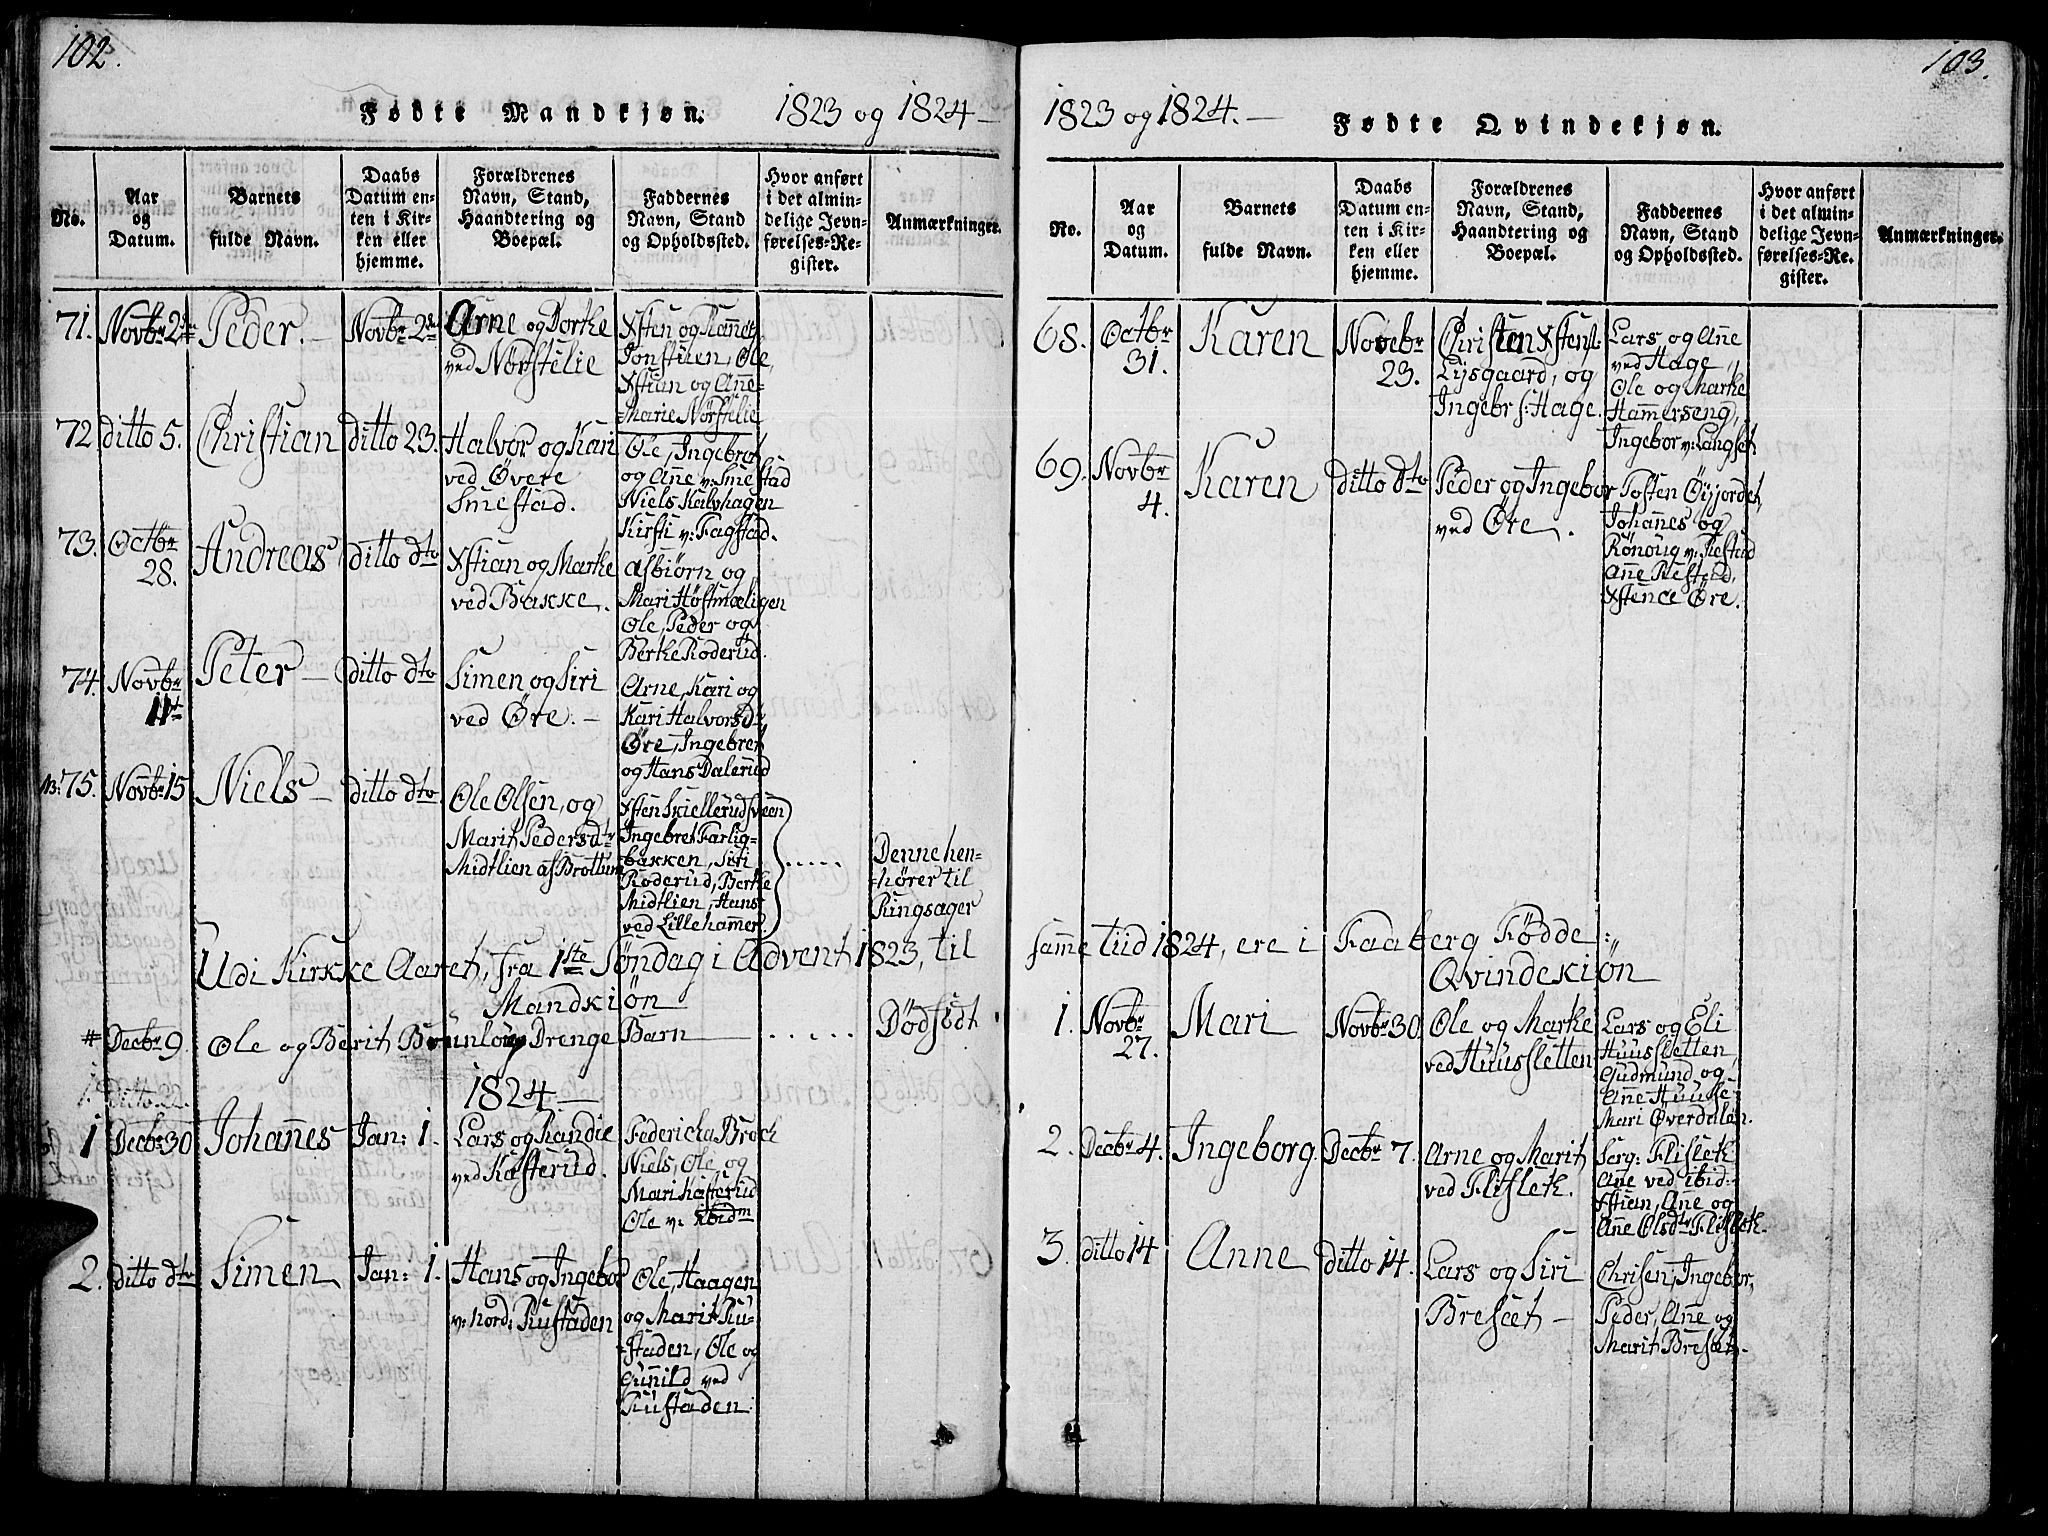 102.
Fødte Mandkjøn. 1823 og 1824 —
No.
Aar
og
Datum.
Barnets
fulde Navn.
Daabs
Datum en-
ten i Kir-
ken eller
hjemme.
Forældrenes
Navn, Stand,
Haandtering og
Boepæl.
Faddernes
Navn, Stand
og Opholdssted.
Hvor anført
i det almin-
delige Jevn-
førelses-Re-
gister.
Anmærkninger.
71.
Novbr 2den
Peder. —
Novbr 2den
Arne og Dorthe
ved Nørstelie
Xsten og Rannei
Jonstuen, Ole,
Xstian og Anne-
=Marie Nørstelie
72
ditto 5.
Christian
ditto 23.
Halvor og Kari
ved Øvere
Smestad.
Ole, Ingebret
og Anne v: Smestad
Niels Kalvhagen
Kirsti v: Fagstad.
73.
Octbr
28.
Andreas
ditto dto
Xstian og Marthe
ved Bakke.
Asbiørn og
Mari Høstmæligen
Ole, Peder og
Berthe Roderud.
74.
Novbr
11t
Peter —
ditto dto
Simen og Siri
ved Øre. —
Arne, Kari og
Kari Halvorsdr
Øre, Ingebret
og Hans Dalerud
NB: 75.
Novbr 15
Niels —
ditto dto
Ole Olsen, og
Marit Pedersdtr
Midtlien af Brøttum
Xsten Skiellerudsveen
Ingebret Farlig-
=bakken, Siri
Roderud, Berthe
Midtlien, Hans
ved Lillehammer.
.....
Denne hen-
=hører til
Ringsager
Udi Kirke Aaret, fra 1ste Søndag i Advent 1823, til
Mandkiøn
#
Decbr 9.
Ole og Berit Brunløug Drenge Barn
.....
Dødfødt
1824 —
1
Decbr 30
Johannes
Jan: 1.
Lars og Randie
ved Kafferud.
Federicha Broch
Niels, Ole, og
Mari Kafferud
Ole v: ibidm
2.
ditto dto
Simen
Jan: 1.
Hans og Ingebor
v: nord: Rustaden
Ole, Haagen
og Marit Ru-
=staden, Ole og
Gunild ved
Rustaden.
103.
1823 og 1824. — Fødte Qvindekjøn.
No.
Aar
og
Datum.
Barnets
fulde Navn.
Daabs
Datum en-
ten i Kir-
ken eller
hjemme.
Forældrenes
Navn, Stand,
Haandtering og
Boepæl.
Faddernes
Navn, Stand
og Opholdssted.
Hvor anført
i det almin-
delige Jevn-
førelses-Re-
gister.
Anmærkninger.
68.
Octbr
31.
Karen
Novebr
23.
Christen Xstens:
Lysgaard, og
Ingebr s: Hage.
Lars og Anne
ved Hage,
Ole og Marthe
Hammerseng,
Ingebor v: Langset
69.
Novbr
4.
Karen
ditto dto
Peder og Ingebor
ved Øre.
Tosten Øyjordet,
Johannes og
Rønoug v: Restad
Anne Restad,
Xstence Øre.
samme tiid 1824, ere i Faaberg Fødde:
Qvindekiøn
1.
Novbr
27.
Mari
Novbr 30.
Ole og Marthe
ved Huussletten
Lars og Eli
Huussletten,
Gudmund og
Anne Huuske
Mari Øverdalen.
2.
Decbr 4.
Ingeborg
Decbr 7.
Arne og Marit
ved Flisleth.
Serg: Flisleth
Ane ved ibid:
Xstian, Ane og
Ane Olsdtr Flisleth.
3.
ditto 14
Anne
ditto 14.
Lars og Siri
Breseet —
Chrisen, Ingebor,
Peder, Anne og
Marit Breseet.